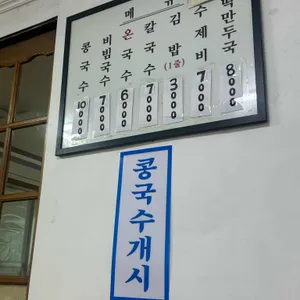 메뉴
콩국수 10000
비빔국수 7000
온국수 6000
칼국수 7000
김밥(1줄) 3000
수제비 7000
떡만두국 8000
콩국수개시